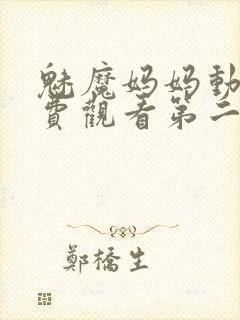 魅魔妈妈動
費觀看第二
鄭橋生